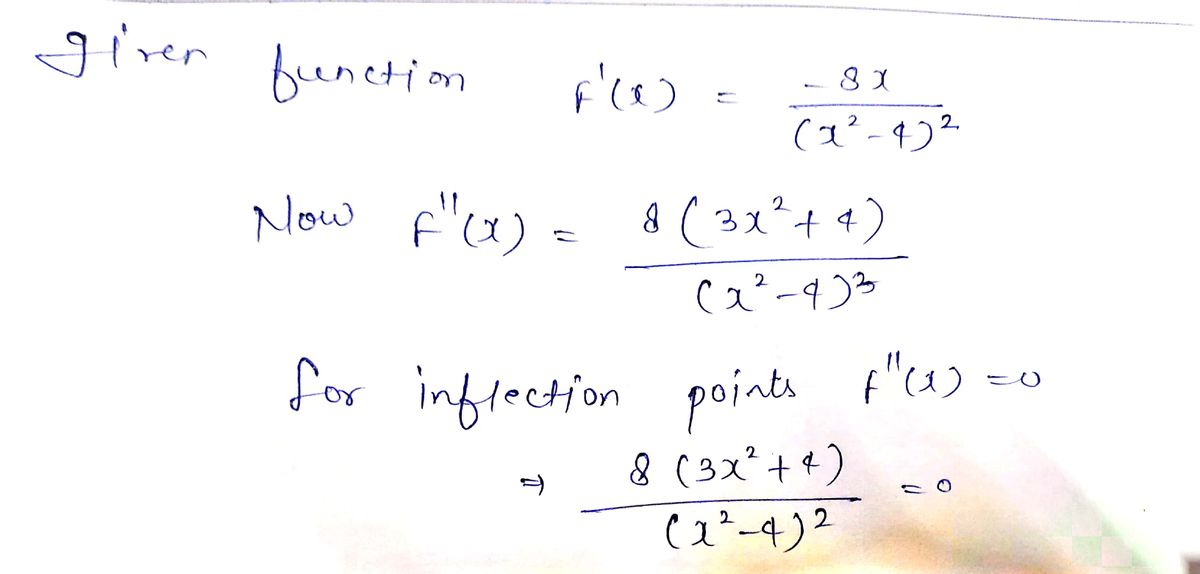 given function f'(x) = -8x / (x²-4)²
Now f''(x) = 8(3x²+4) / (x²-4)³
for inflection points f''(x) = 0
⇒ 8(3x²+4) / (x²-4)² = 0